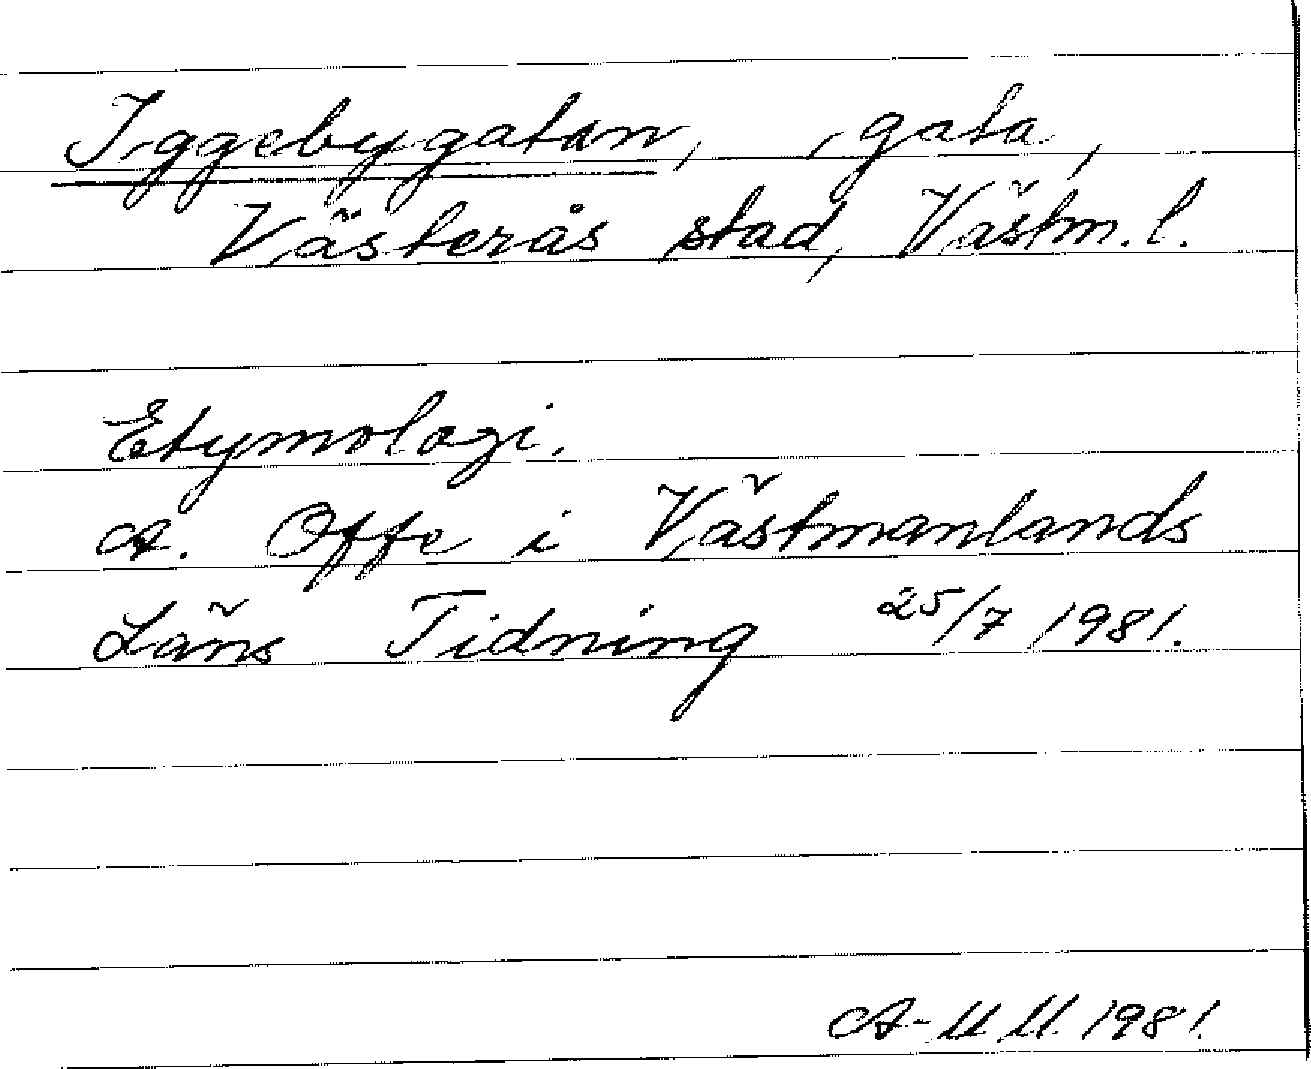 Iggebygatan, gata,
Västerås stad, Västm. l.
Etymologi.
A. Offe i Västmanlands
Läns Tidning 25/7 1981.
A-M M. 1981.